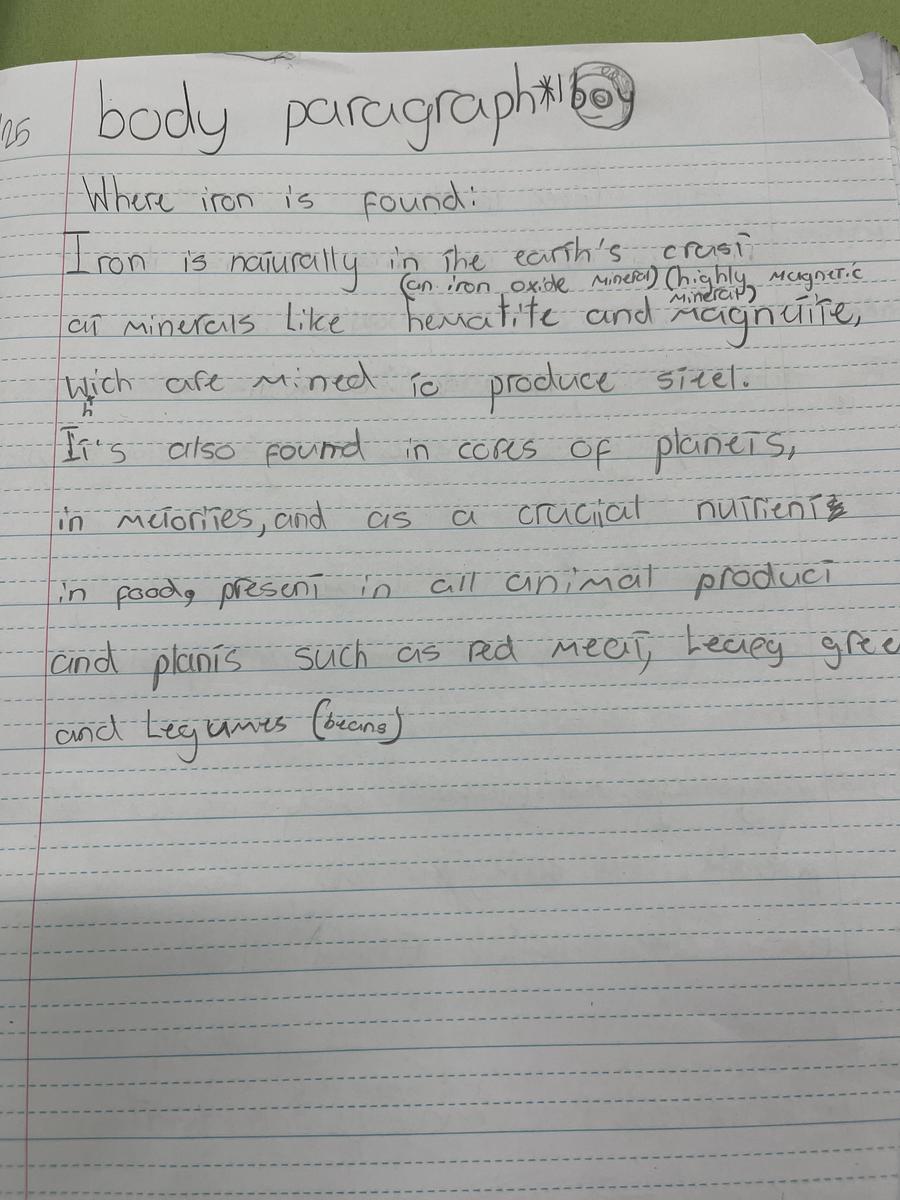 /25
body paragraph *1 boy
Where iron is found:
Iron is naturally in the earth's crust
(an iron oxide mineral) (highly magnetic mineral)
at minerals like hematite and magnatite,
Wich are mined to produce steel.
h
It's also found in cores of planets,
in metorites, and as a crucial nutrient
in food, present in all animal product
and plants such as red meat, Leafy gree
and Legumes (beans)